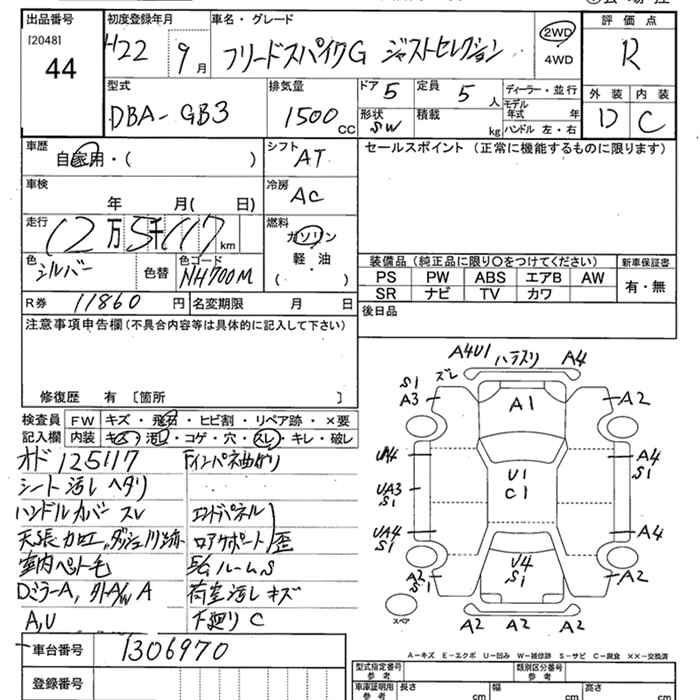 出品番号
[2048]
44
初度登録年月
H22 9月
車名・グレード
フリードスパイクG ジャストセレクション
2WD
4WD
評価点
R
型式
DBA-GB3
排気量
1500 CC
ドア 5
定員 5 人
形状 SW
積載 kg
ディーラー・並行
モデル年式 年
ハンドル 左・右
外装
内装
D
C
車歴
自家用・( )
シフト
AT
セールスポイント (正常に機能するものに限ります)
車検
年 月( 日)
冷房
AC
走行
12万5千117 km
燃料
ガソリン
軽・油
( )
色
シルバー
色替
色コード
NH700M
装備品 (純正品に限り○をつけてください)
新車保証書
PS PW ABS エアB AW
SR ナビ TV カワ
有・無
R券 11860 円
名変期限 月 日
後日品
注意事項申告欄 (不具合内容等は具体的に記入して下さい)
修復歴 有 [箇所 ]
検査員 FW キズ・飛石・ヒビ割・リペア跡・×要
記入欄 内装 キズ・汚し・コゲ・穴・スレ・キレ・破レ
オド 125117
シート 汚し ヘタリ
ハンドルカバー スレ
室内ペット毛
Dミラー A,
A,U
Fインパネ曲がり
エンドパネル
ロアサポート 歪
荷室汚し キズ
下廻り C
A4U1 ハラスリ A4
ズレ
S1
A3
A2
A1
U4
A4
S1
U1
C1
UA3
S1
UA4
S1
A4
U4
S1
A2
S1
A2
A2 A2
スペア
A-キズ E-エクボ U-凹み W-補修跡 S-サビ C-腐食 ××-交換済
車台番号 1306970
登録番号
型式指定番号
参考
類別区分番号
参考
車庫証明用
参考
長さ cm
幅 cm
高さ cm